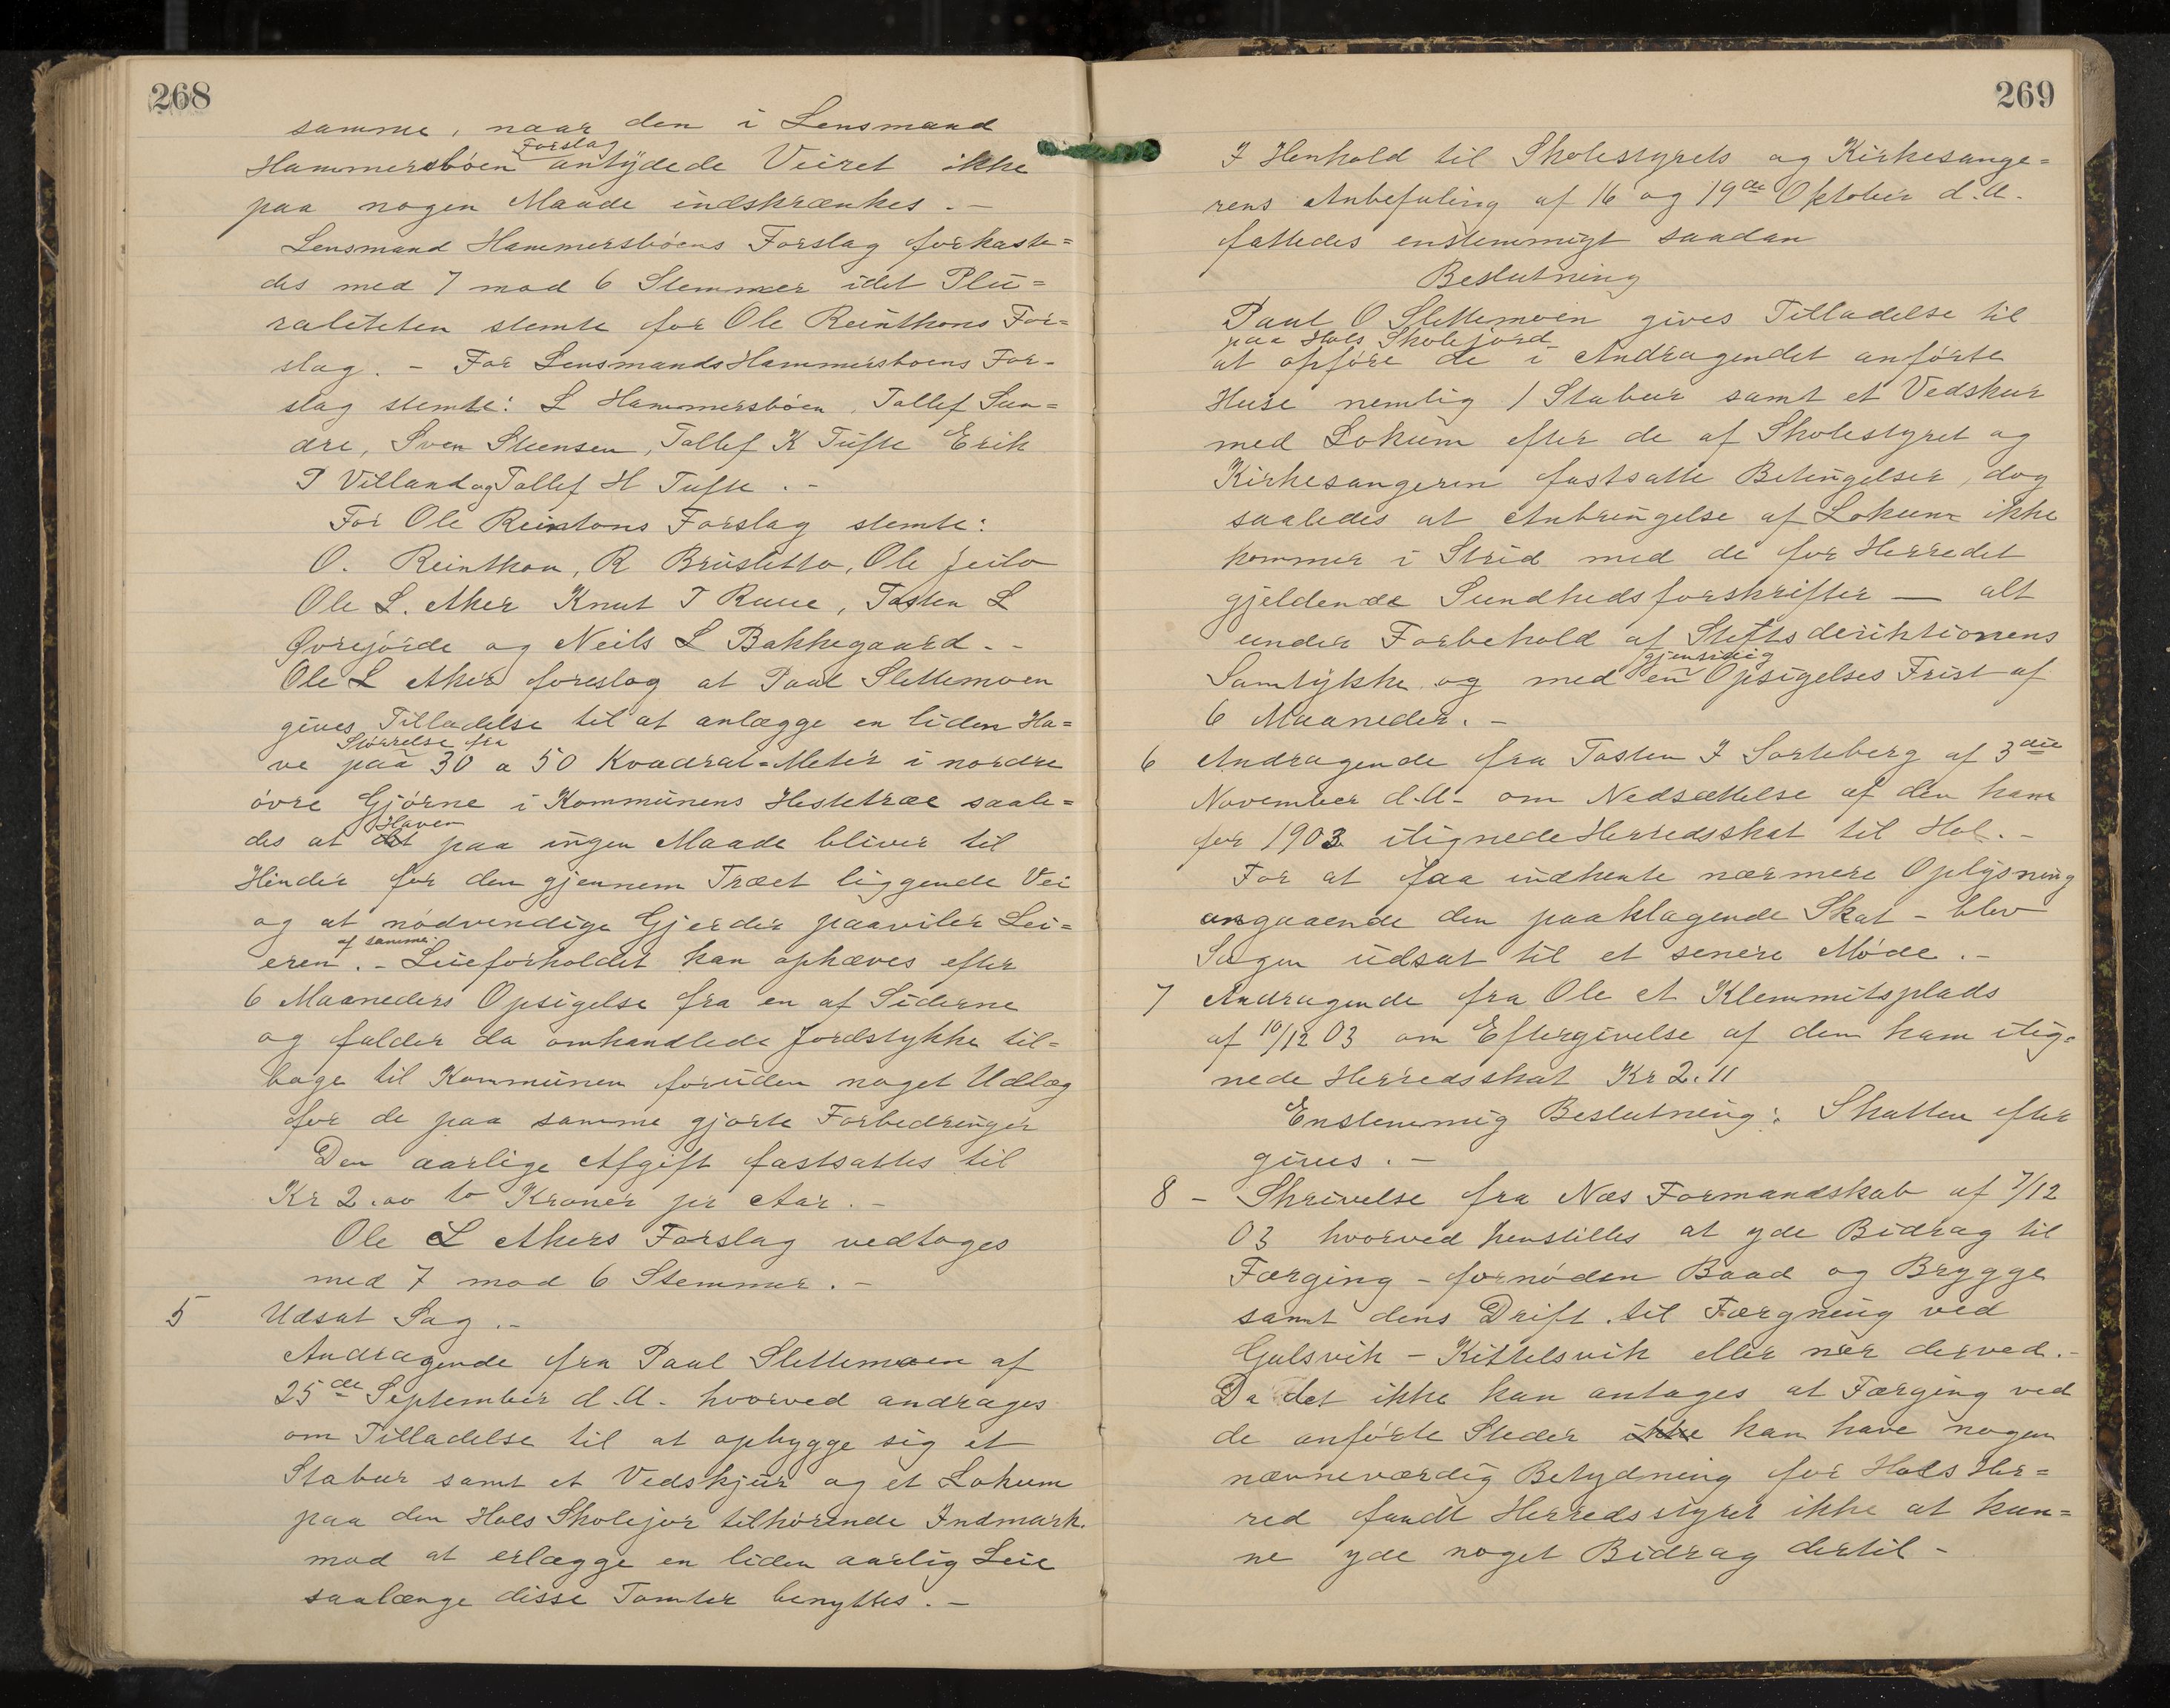 268
samme, naar den i Lensmand
Forslag
Hammersbøen antydede Veiret ikke
paa nogen Maade indskrænkes. -
Lensmand Hammersbøens Forslag forkaste=
des med 7 mod 6 Stemmer idet Plu=
raliteten stemte for Ole Reinthons For=
slag. - For Lensmands Hammersboens For-
slag stemte: L Hammersbøen, Tollef Sun=
dre, Sven Steensen, Tollef K Tufte Erik
P Villand og Tollef H Tufte. -
For Ole Reintons Forslag stemte:
O. Reinthon, R Brusletto, Ole Jeilo
Ole L. Aker Knut T Ruue, Tosten L
Øvrejorde og Neils L Bakkegaard. -
Ole L Aker foreslog at Paul Slettemoen
gives Tilladelse til at anlægge en liden Ha=
Størrelse fra
ve paa 30 a 50 Kvadrat=Meter i nordre
øvre Gjørne i Kommunens Hestetræe saale=
Haven
des at det paa ingen Maade bliver til
Hinder for den gjennem Træet liggende Vei
og at nødvendige Gjerder paaviler Lei=
af samme.
eren. - Leieforholdet kan ophæves efter
6 Maaneders Opsigelse fra en af Siderne
og falder da omhandlede Jordstykke til=
bage til Kommunen foruden noget Udlæg
for de paa samme gjorte Forbedringer
Den aarlige Afgift fastsattes til
Kr 2.00 to Kroner pr Aar. -
Ole L Akers Forslag vedtoges
med 7 mod 6 Stemmer. -
5 Udsat Sag. -
Andragende fra Paul Slettemoen af
25de September d.A. hvorved andrages
om Tilladelse til at opbygge sig et
Stabur samt et Vedskjur og et Lokum
paa den Hols Skolejor tilhørende Indmark.
mod at erlægge en liden aarlig Leie
saalænge disse Tomter benyttes. -
269
I Henhold til Skolestyrets og Kirkesange=
rens Anbefaling af 16 og 19de Oktober d.A.
fattedes enstemmigt saadan
Beslutning
Paul O Slettemoen gives Tilladelse til
paa Hols Skolejord
at opføre de i Andragendet anførte
Huse nemlig 1 Stabur samt et Vedskur
med Lokum efter de af Skolestyret og
Kirkesangeren fastsatte Betingelser, dog
saaledes at Anbringelse af Lokum ikke
kommer i Strid med de for Herredet
gjeldende Sundhedsforskrifter - alt
under Forbehold af Stiftsderiktionens
gjensidig
Samtykke og med en Opsigelses Frist af
6 Maaneder. -
6 Andragende fra Tosten I Sorteberg af 3die
November d.A. om Nedsættelse af den ham
for 1903 ilignede Herredsskat til Hol. -
For at faa indhente nærmere Oplysning
angaaende den paaklagende Skat - blev
Sagen udsat til et senere Møde. -
7 Andragende fra Ole A Klemmitsplads
af 10/12 03 om Eftergivelse af den ham ilig=
nede Herredsskat Kr 2.11
Enstemmig Beslutning: Skatten efter
gives. -
8 - Skrivelse fra Næs Formandskab af 7/12
03 hvorved henstilles at yde Bidrag til
Færging - fornøden Baad og Brygge
samt dens Drift til Færgning ved
Gulsvik - Kittelsvik eller nær derved. -
Da det ikke kan antages at Færging ved
de anførte Steder ikke kan have nogen
nævneværdig Betydning for Hols Her=
red fandt Herredsstyret ikke at kun=
ne yde noget Bidrag dertil -